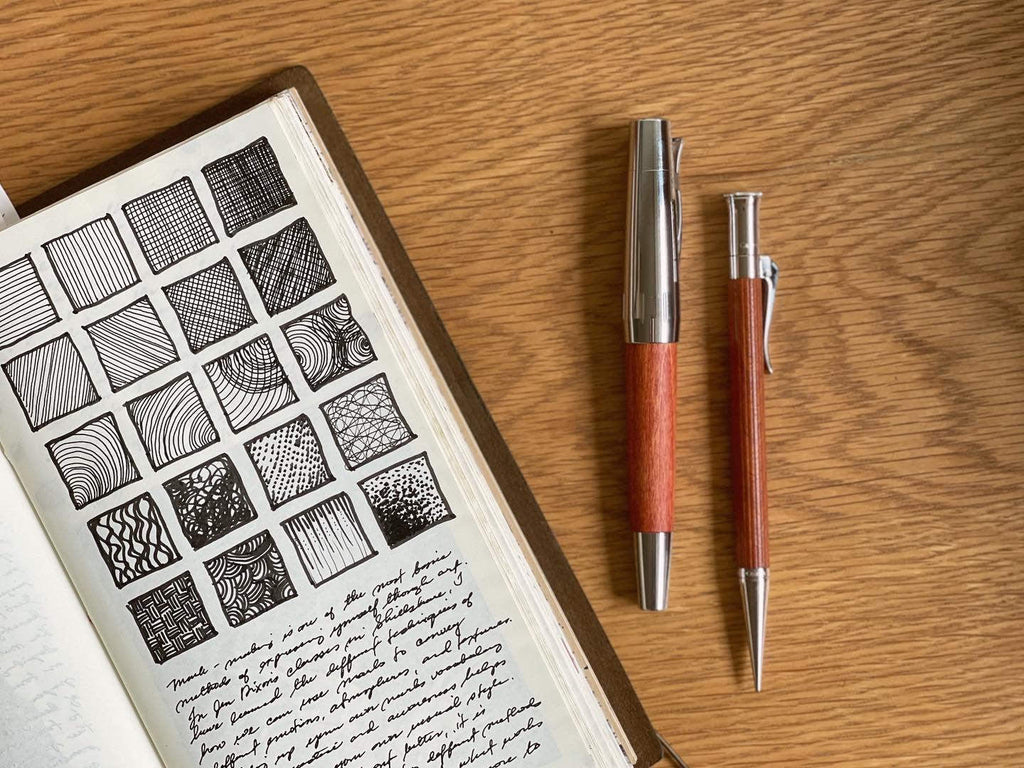 mark-making is one of the most basic
methods of expressing yourself though art.
In Jen Dixon's classes in Skillshare, I
have learned the diffent techniques of
how we can use marks to convey
diffent emotions, atmospheres, and textures.
up your own marks vocabulary
and awareness, helps
your own visual style.
but better, it is
diffent methods
what works
more to